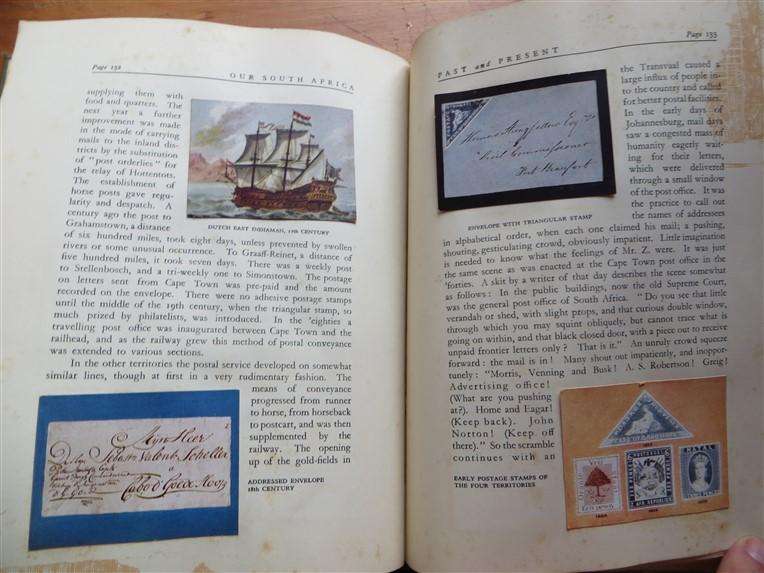 Page 152
OUR SOUTH AFRICA
supplying them with
food and quarters. The
next year a further
improvement was made
in the mode of carrying
mails to the inland dis-
tricts by the substitution
of "post orderlies" for
the relay of Hottentots.
The establishment of
horse posts gave regu-
larity and despatch. A
century ago the post to
Grahamstown, a distance
DUTCH EAST INDIAMAN, 17th CENTURY
of six hundred miles, took eight days, unless prevented by swollen
rivers or some unusual occurrence. To Graaff-Reinet, a distance of
five hundred miles, it took seven days. There was a weekly post
to Stellenbosch, and a tri-weekly one to Simonstown. The postage
on letters sent from Cape Town was pre-paid and the amount
recorded on the envelope. There were no adhesive postage stamps
until the middle of the 19th century, when the triangular stamp, so
much prized by philatelists, was introduced. In the 'eighties a
travelling post office was inaugurated between Cape Town and the
railhead, and as the railway grew this method of postal conveyance
was extended to various sections.
In the other territories the postal service developed on somewhat
similar lines, though at first in a very rudimentary fashion. The
means of conveyance
progressed from runner
to horse, from horseback
to postcart, and was then
supplemented by the
railway. The opening
up of the gold-fields in
Myn Heer
ADDRESSED ENVELOPE
18th CENTURY
PAST and PRESENT
Page 153
the Transvaal caused a
large influx of people in-
to the country and called
for better postal facilities.
In the early days of
Johannesburg, mail days
saw a congested mass of
humanity eagerly wait-
ing for their letters,
which were delivered
through a small window
of the post office. It was
the practice to call out
the names of addressees
Civil Commissioner
Fort Beaufort
ENVELOPE WITH TRIANGULAR STAMP
in alphabetical order, when each one claimed his mail; a pushing,
shouting, gesticulating crowd, obviously impatient. Little imagination
is needed to know what the feelings of Mr. Z. were. It was just
the same scene as was enacted at the Cape Town post office in the
'forties. A skit by a writer of that day describes the scene somewhat
as follows: In the public buildings, now the old Supreme Court,
was the general post office of South Africa. "Do you see that little
verandah or shed, with slight props, and that curious double window,
through which you may squint obliquely, but cannot trace what is
going on within, and that black closed door, with a piece out to receive
unpaid frontier letters only? That is it." An unruly crowd squeeze
forward: the mail is in! Many shout out impatiently, and inoppor-
tunely: "Morris, Venning and Busk! A. S. Robertson! Greig!
Advertising office!
(What are you pushing
at?). Home and Eagar!
(Keep back). John
Norton! (Keep off
there)." So the scramble
continues with an
EARLY POSTAGE STAMPS OF
THE FOUR TERRITORIES